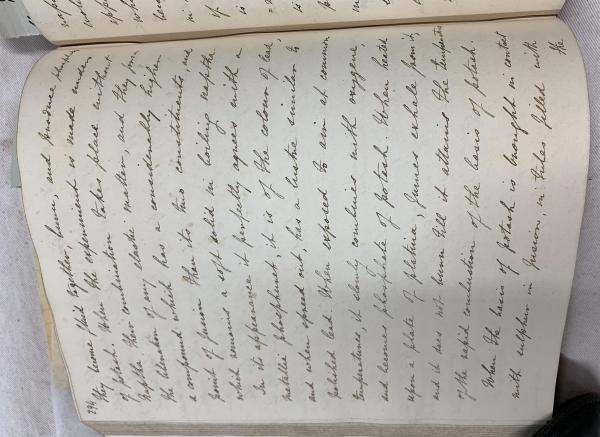 294
they become fluid together, burn, and produce phosphate
of potash. When the experiment is made under
naptha, their combination takes place without
the liberation of any elastic matter, and they form
a compound which has a considerably higher
point of fusion than its two constituents, and
which remains a soft solid in boiling naptha.
In its appearance it perfectly agrees with a
metallic phosphuret, it is of the colour of lead,
and when spread out, has a lustre similar to
polished lead. When exposed to air at common
temperatures, it slowly combines with oxygene
and becomes phosphate of potash. When heated
upon a plate of platina, fumes exhale from it,
and it does not burn till it attains the temperature
of the rapid combustion of the basis of potash.
When the basis of potash is brought in contact
with sulphur in fusion, in tubes filled with
the